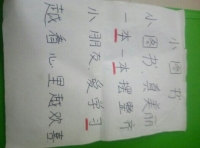 小图书
小图书真美丽
一本一本摆整齐
小朋友爱学习
越看心里越欢喜